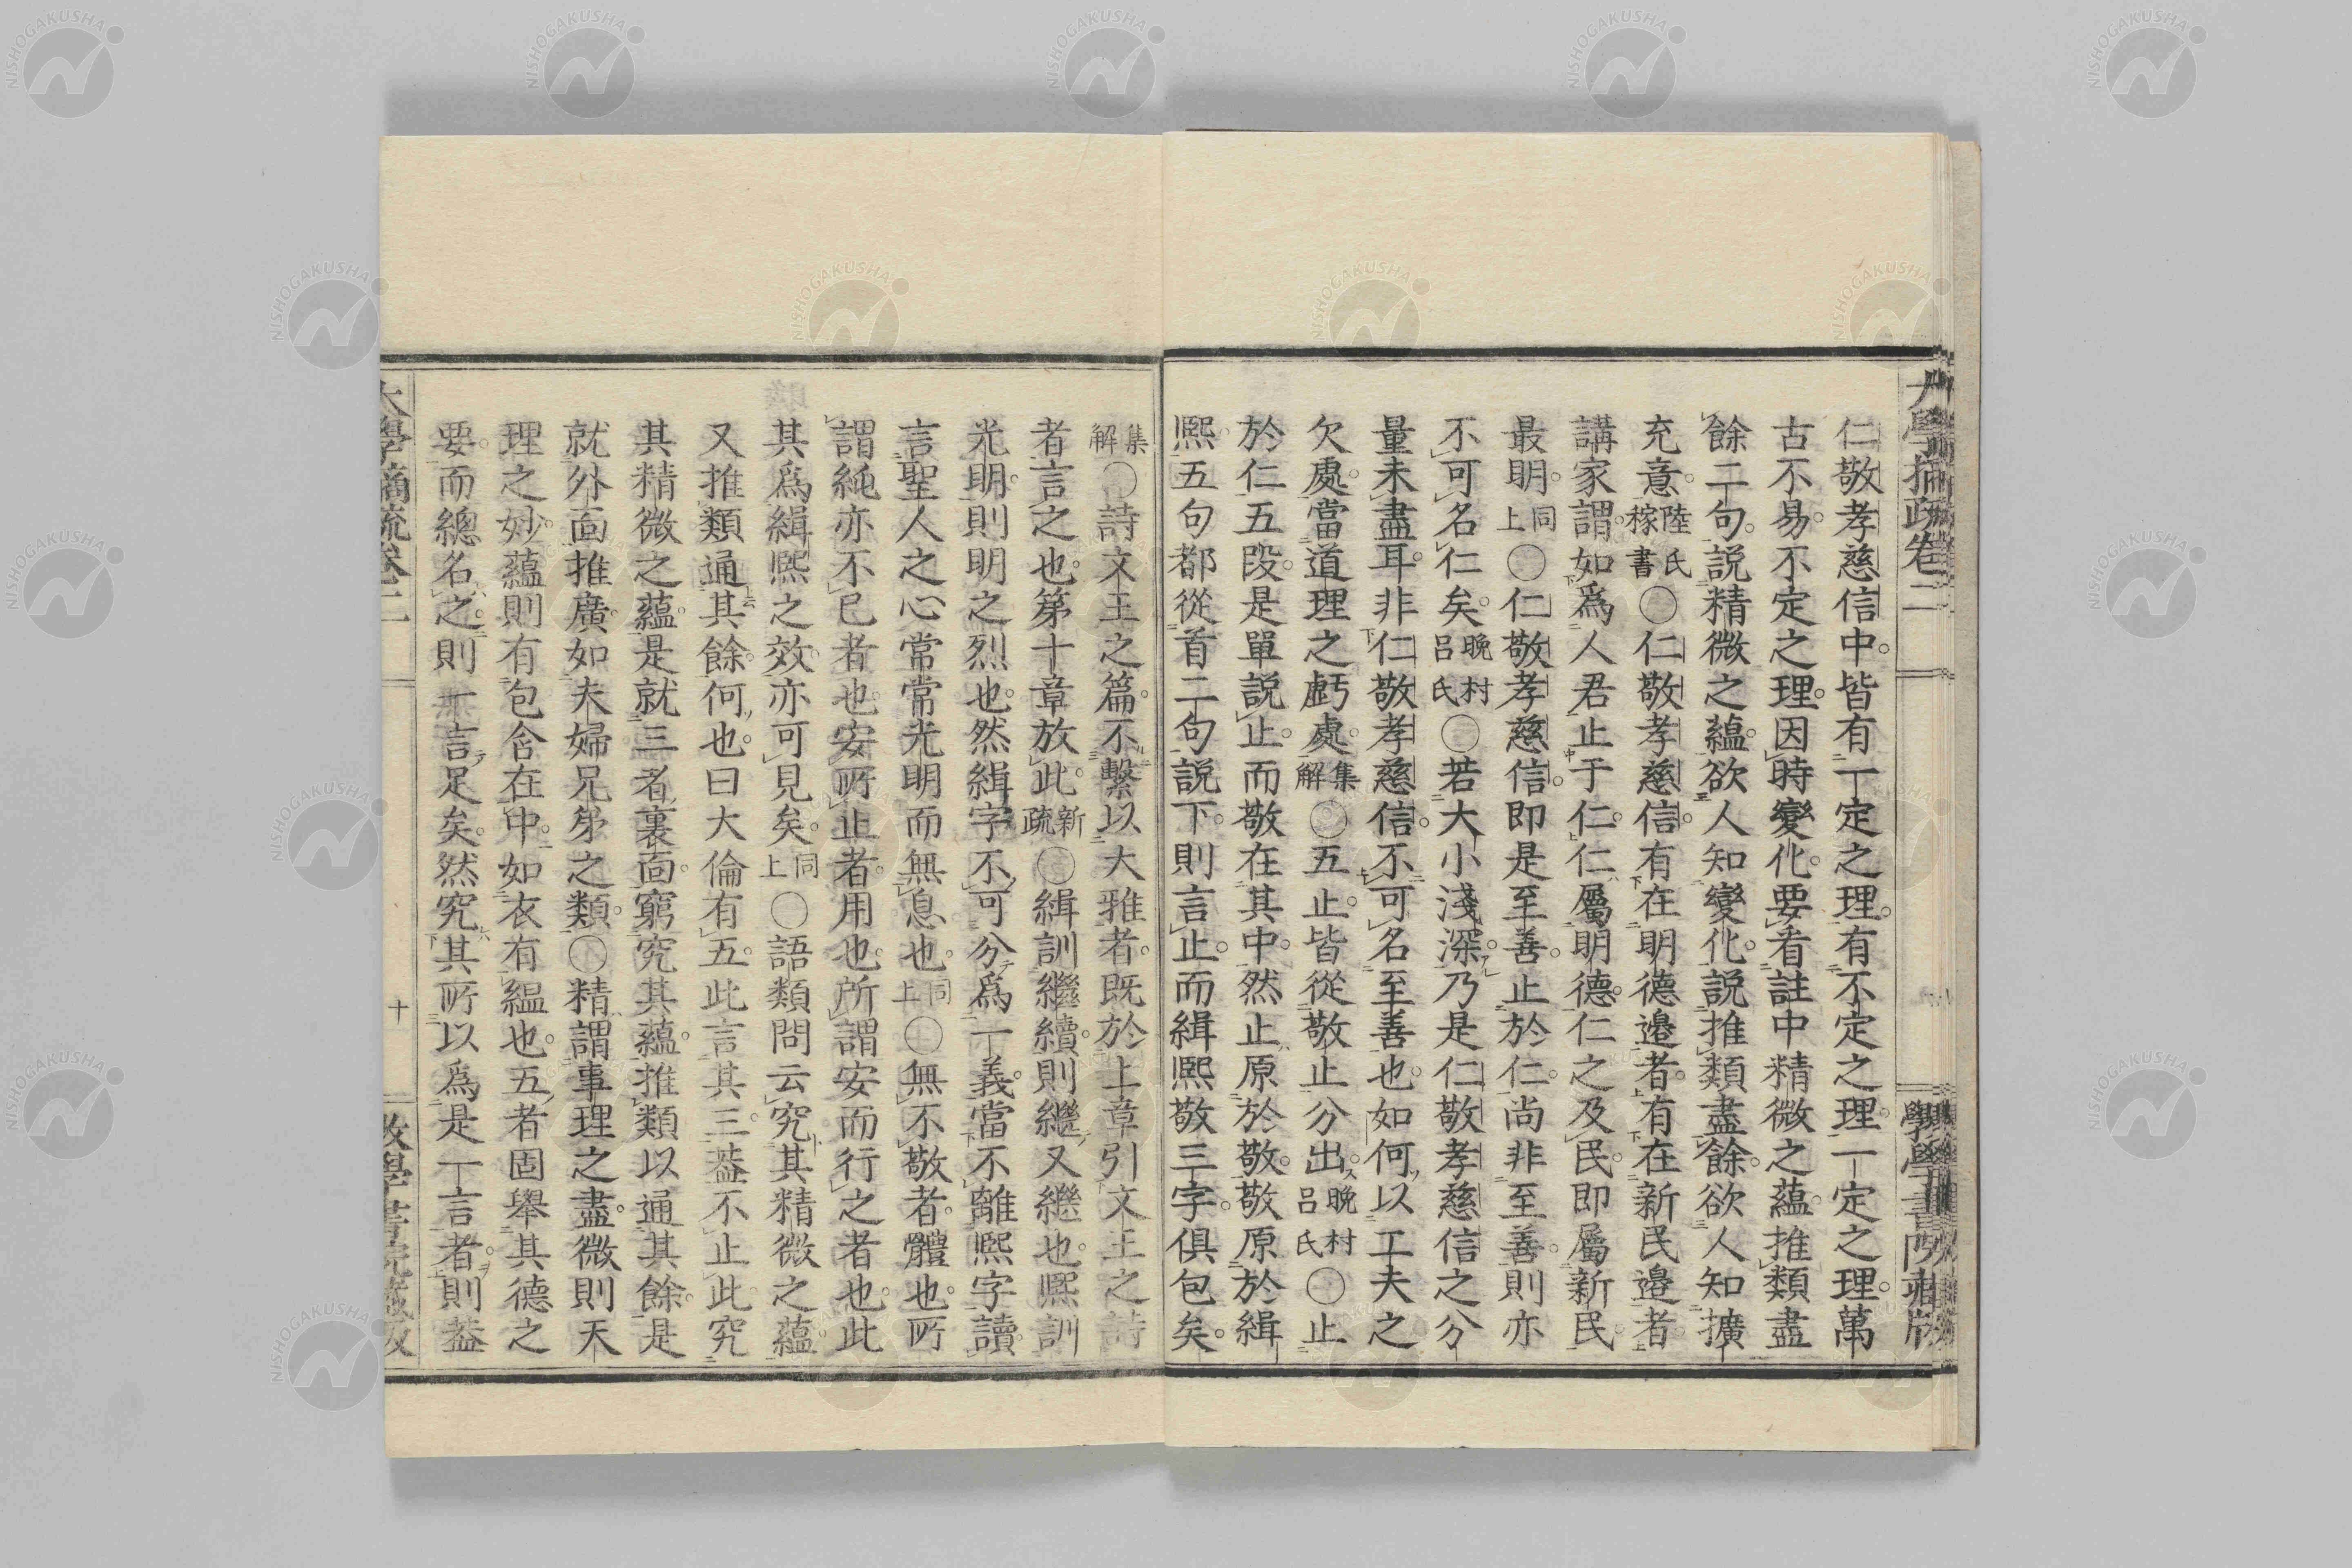 大學摘疏卷二
仁敬孝慈信中皆有一定之理有不定之理一定之理萬
古不易不定之理因時變化要看註中精微之蘊推類盡
餘二句說精微之蘊欲人知變化說推類盡餘欲人知擴
充意陸氏稼書〇仁敬孝慈信有在明德邉者有在新民邉者
講家謂如爲人君止于仁仁屬明德仁之及民即屬新民
最明同上〇仁敬孝慈信即是至善止於仁尚非至善則亦
不可名仁矣晩村呂氏〇若大小淺深乃是仁敬孝慈信之分
量未盡耳非仁敬孝慈信不可名至善也如何以工夫之
欠處當道理之虧處集解〇五止皆從敬止分出晩村呂氏〇止
於仁五段是單說止而敬在其中然止原於敬敬原於緝
熙五句都從首二句說下則言止而緝熙敬三字俱包矣
集解〇詩文王之篇不繫以大雅者既於上章引文王之詩
者言之也第十章放此新疏〇緝訓繼續則繼又繼也熙訓
光明則明之烈也然緝字不可分爲一義當不離熙字讀
言聖人之心常常光明而無息也同上〇無不敬者體也所
謂純亦不已者也安所止者用也所謂安而行之者也此
其爲緝熙之效亦可見矣同上〇語類問云究其精微之蘊
又推類通其餘何也曰大倫有五此言其三蓋不止此究
其精微之蘊是就三者裏面窮究其蘊推類以通其餘是
就外面推廣如夫婦兄弟之類〇精謂事理之盡微則天
理之妙蘊則有包含在中如衣有緼也五者固舉其德之
要而總名之則無言足矣然究其所以爲是一言者則蓋
大學摘疏卷二
十